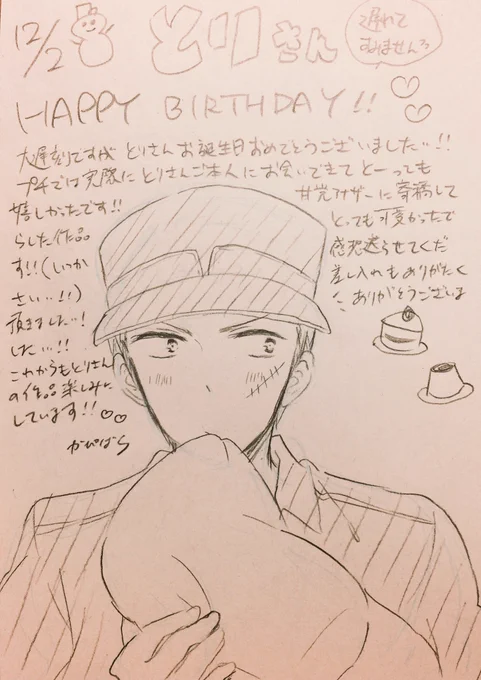 12/2 とりさん
遅れて
すみませんろ
HAPPY BIRTHDAY!!
大遅刻ですが とりさんお誕生日おめでとうございました…!!
プチでは実際にとりさんご本人にお会いできてとーっても
嬉しかったです!! 甘党アザーに寄稿して
らした作品 とっても可愛かったで
す!!(いつか 感想送らせてくだ
さい…!!) 差し入れもありがたく
頂きました…! ありがとうございま
した…!!
これからもとりさん
の作品楽しみに
しています!!
かぴばら